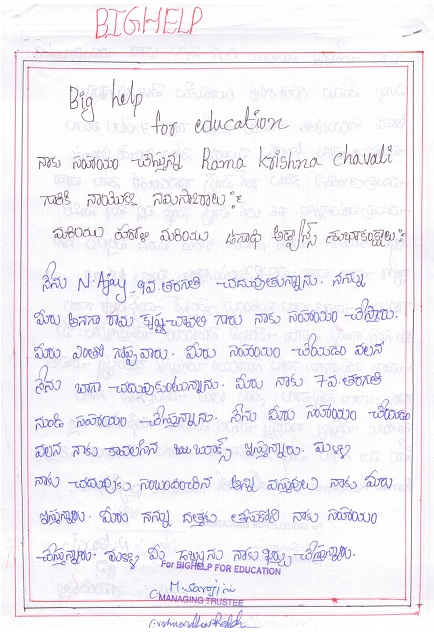 BIGHELP
Big help
for education
నాకు సహాయం చేస్తున్న Rama Krishna chavali
గారికి నాయొక్క నమస్కారాలు
మరియు హోళి మరియు ఉగాది అడ్వాన్స్ శుభాకాంక్షలు
నేను N. Ajay చదువుతున్నాను. నన్ను
మీరు అనగా రామ కృష్ణ చావలి గారు నాకు సహాయం చేస్తారు.
మీరు ఎంతో గొప్పవారు. మీరు సహాయం చేయడం వలన
నేను బాగా చదువుకుంటున్నాను. మీరు నాకు 7వ తరగతి
నుండి సహాయం చేస్తున్నారు. నేను మీరు సహాయం చేయడం
వలన నాకు కావలసిన ఇస్తున్నారు. మళ్ళీ
నాకు చదువుకు సంబందించిన అన్ని వస్తువులు నాకు మీరు
ఇస్తున్నారు. మీరు నన్ను దత్తకు తీసుకోని నాకు సహాయం
చేస్తున్నారు. మళ్ళీ మీ డబ్బును నాకు ఖర్చు చేస్తున్నారు.
For BIGHELP FOR EDUCATION
MANAGING TRUSTEE